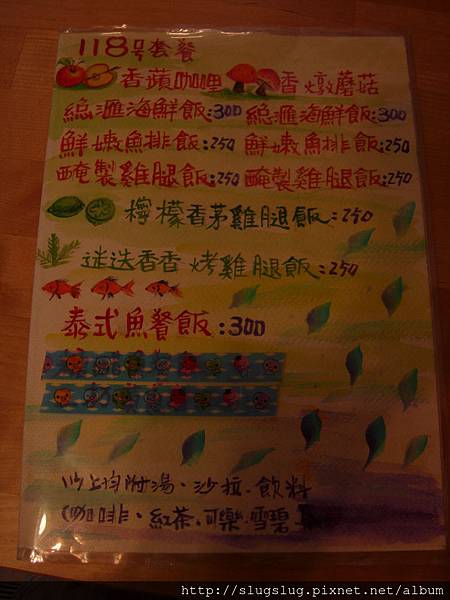 118号套餐
香蘋咖哩 香燉蘑菇
總滙海鮮飯:300 總滙海鮮飯:300
鮮嫩魚排飯:250 鮮嫩魚排飯:250
醃製雞腿飯:250 醃製雞腿飯:250
檸檬香茅雞腿飯:250
迷迭香香烤雞腿飯:250
泰式魚餐飯:300
以上均附湯、沙拉.飲料
(咖啡、紅茶.可樂.雪碧
http://slugslug.pixnet.net/album